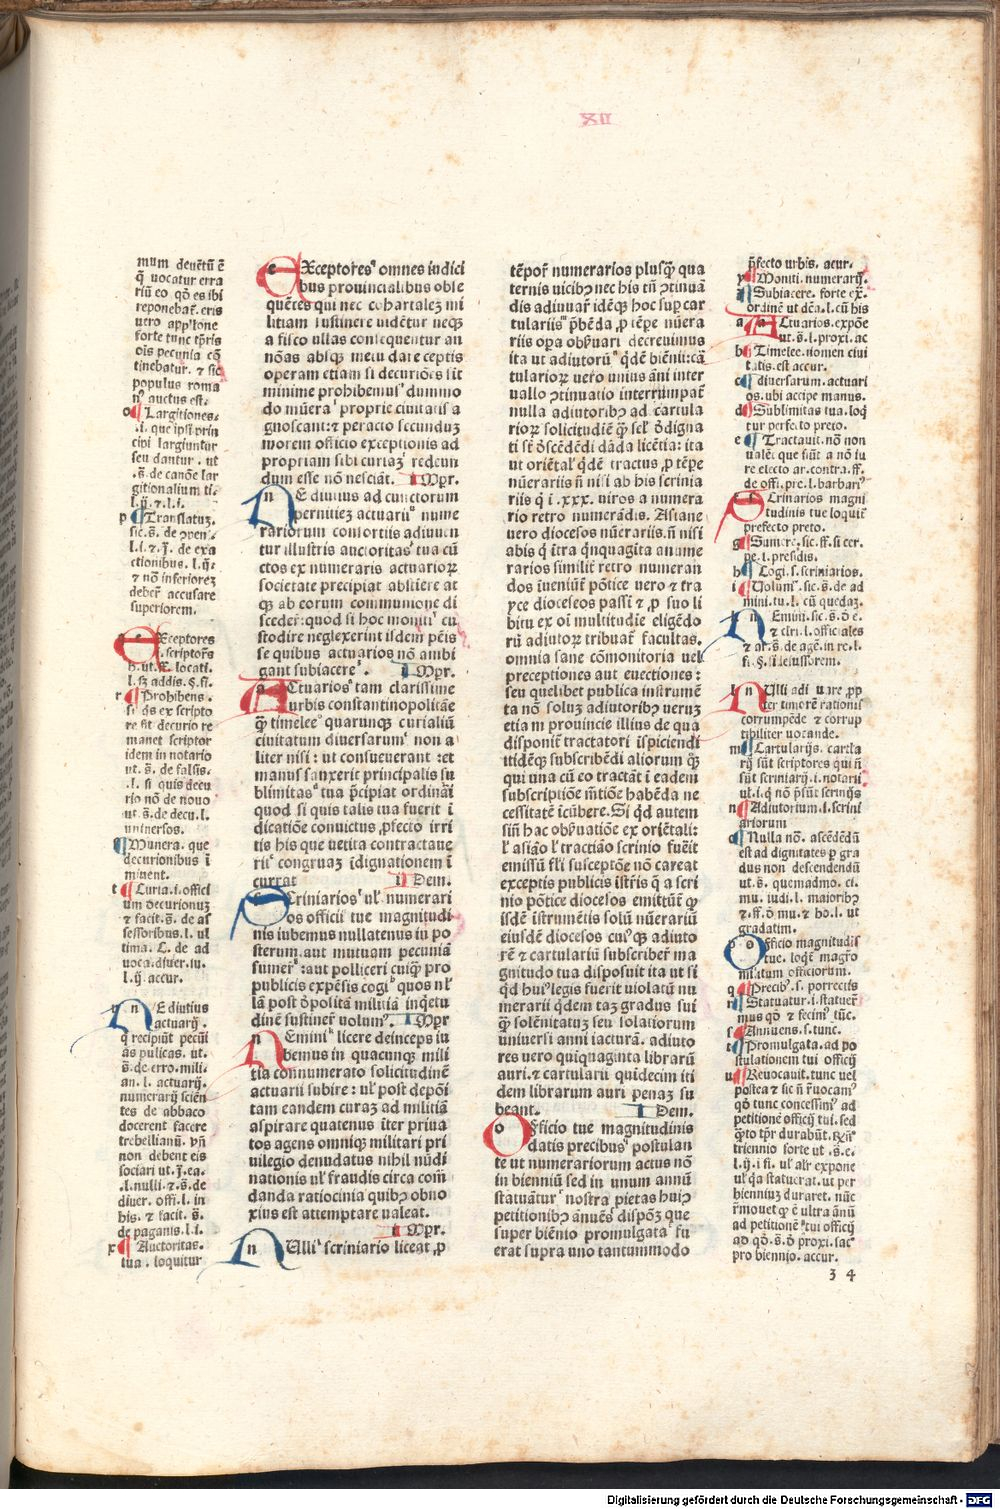 XII
mum deuētū ē
q̄ uocatur erra
riū eo qđ eſ ibi
reponebať. eris
uero app'lone
forte tunc tp̄ris
oīs pecunia cō
tinebatuř. ⁊ sic
populus roma
auctus est.
o Largitiones.
.i. que ipsi prin
cipi largiuntur
seu dantur. ut
.s̄. de canōe lar
gitionalium ti.
l.ij. ⁊.l.i.
p Translatuz.
sic.s̄. de
l.i.⁊.ij. de exa
ctionibus. l.ij.
⁊ nō inferiorez
debeř accusare
superiorem.
Exceptores
.i.scriptoř̄s
ut.ff. locati.
l.sꝫ addis.§.fi.
r Prohibens.
si ds̄ ex scripto
re fit decurio re
manet scriptor
idem in notario
ut.s̄. de falsis.
.l. si quis decu
rio nō de nouo
ut.s̄.de decu.l.
uniuersos.
s Munera. que
decurionibus ī
minent.
t Curia.i.offici
um decurionuz
⁊ facit.s̄. de as
sessoribus.l. ul
tima. C. de ad
uoca.diuer.iu.
l.ij. accur.
u n Ediutius
actuarij.
q̄ recipiūt pecūi
as pulicas. ut.
s̄.de erro.mili.
an.l. actuarij.
numerarij sciēn
tes de abbaco
docerent facere
trebellianū.
non debent eis
sociari ut.j.ea.
.l.nulli.⁊.s̄.de
diuer. offi.l. in
his. ⁊ facit. s̄.
de paganis.l.i.
x Auctoritas.
tua. loquitur
Exceptores omnes iudici
bus prouincialibus obse
quētes qui nec cohartalez mi
litiam sustinere uidētur neqꝫ
a fisco ullas consequentur an
nōas absqꝫ metu date ceptis
operam etiam si decuriōes sīt
minime prohibemus dummo
do mūera proprie ciuitatis a
gnoscant:⁊ peracto secunduz
morem officio exceptionis ad
propriam sibi curiaz redeun
dum esse nō nesciāt. I Mpr.
n E diutius ad cunctorum
pernitiez actuarii nume
rariorum consortiis adiuuen
tur illustris auctoritas tua cū
ctos ex numeris actuarioꝝ
societate precipiat abstiere at
qꝫ ab eorum communione di
scedeř:quod si hoc moniti cu
stodire neglexerint iisdem pēis
se quibus actuarios nō ambi
gant subiacere. I Mpr.
a Ctuarios tam clarissime
urbis constantinopolitāe
timelee quarunqꝫ curialiū
ciuitatum diuersarum non a
liter nisi : ut consueuerant :et
manus sanxerit principalis su
blimitas tua p̄cipiat ordināri
quod si quis talis tua fuerit ī
dicatiōe conuictus ꝓfecto irri
tis his que uetita contractaue
rit congruaz īdignationem ī
currat I Dem.
Scriniarios ul numerari
os officii tue magnitudi
nis iubemus nullatenus iu po
sterum aut mutuam pecuniā
sumeř:aut polliceri cuiqꝫ pro
publicis expēsis cogi quos nl
lā post dpolitā militiā inqetu
dinē sustineř uolum. I Mpr
n Emini licere deinceps iu
bemus in quacunqꝫ mili
tia connumerato solicitudinē
actuarii subire : ul post depōi
tam eandem curaz ad militiā
aspirare quatenus īter priua
tos agens omniqꝫ militari pri
uilegio denudatus nihil nūdi
nationis ul fraudis circa com̄
danda ratiocinia quibꝫ obno
xius est attemptare ualeat.
I Mpr.
n Ulli scriniario liceat ꝓ
tēpoř numerarios plusqꝫ qua
ternis uicibꝫ nec his tn̄ ꝯtinuā
dis adiuuař idēqꝫ hoc suꝑ car
tulariis p̄bēda ꝓ tēpe nūera
riis opa obẜuari decreuimus
ita ut adiutorū qdē bienii:cā
tularioꝝ uero unius āni inter
uallo ꝯtinuatio interrumpať
nulla adiutoribꝫ ad cartula
rioꝝ solicitudiē qꝫ sel dignа
ti sť d̄scēdēdi dāda licētia: ita
ut oriētal qdē tractus ꝓ tēpe
nūerariis n̄ nisi ab his scrinia
riis q̄ i.xxx. uiros a numera
rio retro numerādis. Asiane
uero diocesos nūerariis.n̄ nisi
abis q̄ ītra qnquagita anume
rarios similiť retro numeran
dos īueniūť pōtice uero ⁊ tra
yce dioceseos passī ⁊ ꝓ suo li
bitu ex oī multitudīe eligēdo
rū adiutoꝝ tribuať facultas.
omnia sane cōmonitoria uel
preceptiones aut euectiones:
seu quelibet publica instrumē
ta nō soluz adiutoribꝫ ueruz
etiam prouincie illius de qua
disponiť tractatori īspiciendi
itidēqꝫ subscribēdi aliorum qꝫ
qui una cū eo tractāt ī eadem
subscriptiōe m̄tiōe habēda ne
cessitatē īcūbere.Si qd autem
siñ hac obẜuatiōe ex oriētali:
l asiāo l tractiāo scrinio fuēit
emissū fli susceptōe nō careat
exceptis publicis istr̄is q̄ a scri
nio pōtice diocesos emittūť qꝫ
isdē īstrumētis solū nūerariū
eiusdē diocesos cui qꝫ adiuto
rē ⁊ cartulariū subscribeř ma
gnitudo tua disposuit ita ut si
qd hui legis fuerit uiolatū nu
merarii qdem taz gradus sui
solēnitatuz seu solatiorum
uniuersi anni iacturā. adiuto
res uero quiquaginta librarū
auri.⁊ cartularii quīdecim iti
dem librarum auri penaz su
beant. I Dem.
o Officio tue magnitudinis
datis precibus postulan
te ut numerariorum actus nō
in bienniū sed in unum annū
statuātur nostra pietas huiꝫ
petitionibꝫ ānuēs dispōz que
super biēnio promulgata fu
erat supra uno tantummodo
p̄fecto urbis. acur.
y Moniti. numerarij.
z Subiacere. forte ex.
ordinē ut dēa.l.cū his
a Ctuarios.expōe
ut.s̄.l.proxi.ac
b Timelee.nomen ciui
tatis.est accur.
c diuersarum.actuari
os.ubi accipe manus.
d Sublimitas tua.loqͥ
tur perfecto preto.
e Tractauit.nō non
ualeť. que sūt a nō iu
re electo ar.contra.ff.
de offi.pre.l.barbari
Scrinarios magni
tudinis tue loquiť
prefecto preto.
g Sumere.sic.ff.si cer.
pe.l.presidis.
h Cogi.s.scriniarios.
i Uolum.sic.s̄.de ad
mini.tu.l. cū quedaz.
n Emini.sic.s̄.ō e.
⁊ clri.l.officiales
⁊ ař.s̄.de agē.in re.l.
fi.§.si eiussorem.
l n Ulli adiuuare.ꝓp
ter timorē rationis
corrumpēde ⁊ corrup
tibiliter uocande.
m Cartularijs. cartla
rij sūt scriptores qui n̄
sūt scriniarij.i.notarii
ul.i.q nō p̄sūt scrinijs
n Adiutorum.l.scrini
ariorum
o Nulla nō. ascēdēdū
est ad dignitates p gra
dus non descendendū
ut.s̄. quemadmo. ci.
mu. indi.l. maioribꝫ
⁊.ff.ō mu.⁊ ho.l. ut
gradatim.
p o Officio magnitudis
tue. loqť magr̄o
militum officiorum.
q Precibꝫ.s. porrectis
r Statuatur.i.statueř
mus qđ ⁊ fecim tūc.
s Annuens.s.tunc.
t Promulgata.ad po
stulationem tui officij
u Reuocauit.tunc uel
postea ⁊ sic n̄ ř̄uocam
qđ tunc concessim ad
petitionē officij tui.sed
qꝫto tp̄r durabūt.
triennio forte ut .s̄.e.
l.ij.i fi. ul alř expone
ul qa statuerat.ut per
bienniuz duraret. nūc
ř̄mouet qꝫ ē ultra ānū
ad petitionē tui officij
ad qđ.s̄.ō proxi.sac
pro biennio. accur.
3 4
Digitalisierung gefördert durch die Deutsche Forschungsgemeinschaft - DFG